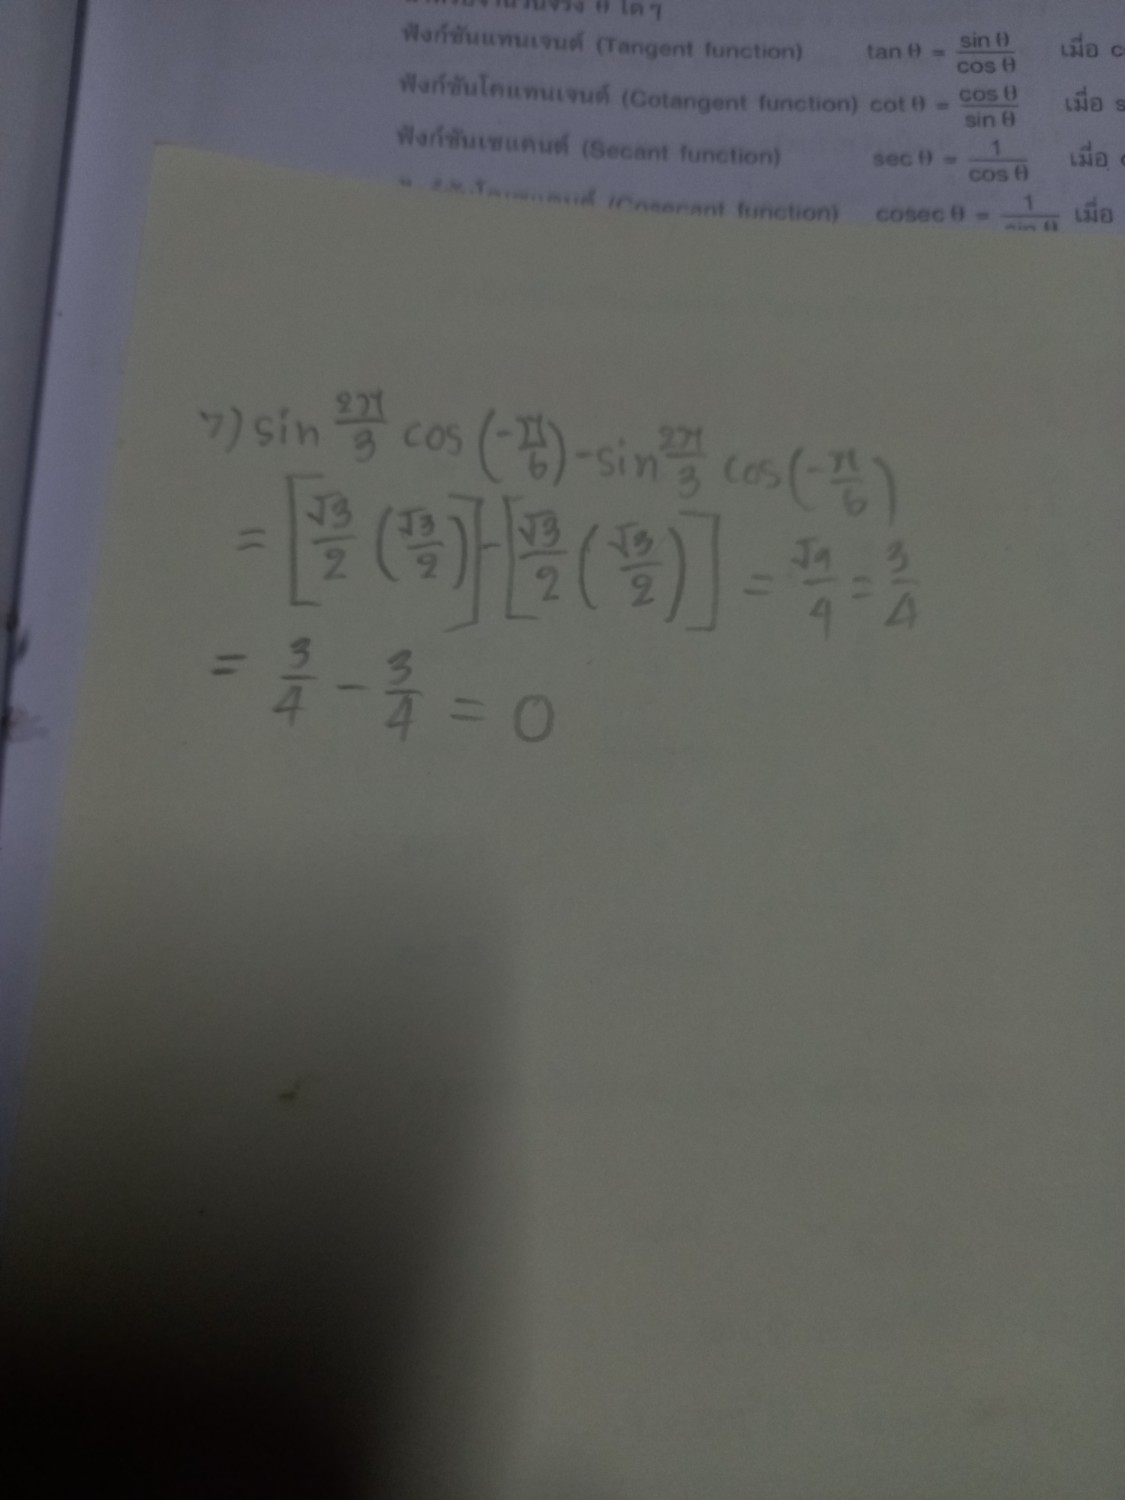 θ ใดๆ
ฟังก์ชันแทนเจนต์ (Tangent function) tan θ = sin θ / cos θ เมื่อ c
ฟังก์ชันโคแทนเจนต์ (Cotangent function) cot θ = cos θ / sin θ เมื่อ s
ฟังก์ชันเซแคนต์ (Secant function) sec θ = 1 / cos θ เมื่อ c
(Cosecant function) cosec θ = 1 / sin θ เมื่อ
7) sin 2π/3 cos (-π/6) - sin 2π/3 cos (-π/6)
= [√3/2 (√3/2)] - [√3/2 (√3/2)] = √9/4 = 3/4
= 3/4 - 3/4 = 0